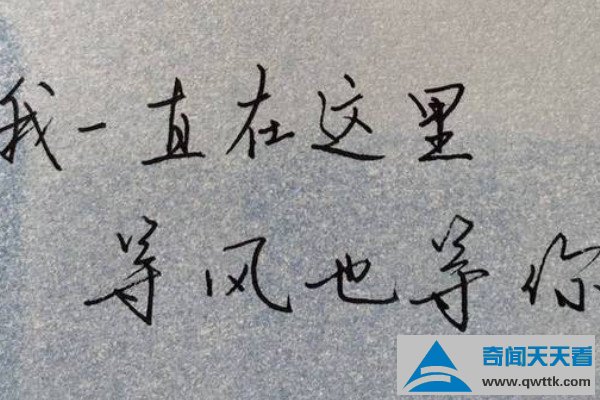 我一直在这里
等风也等你
奇闻天天看
www.qwttk.com